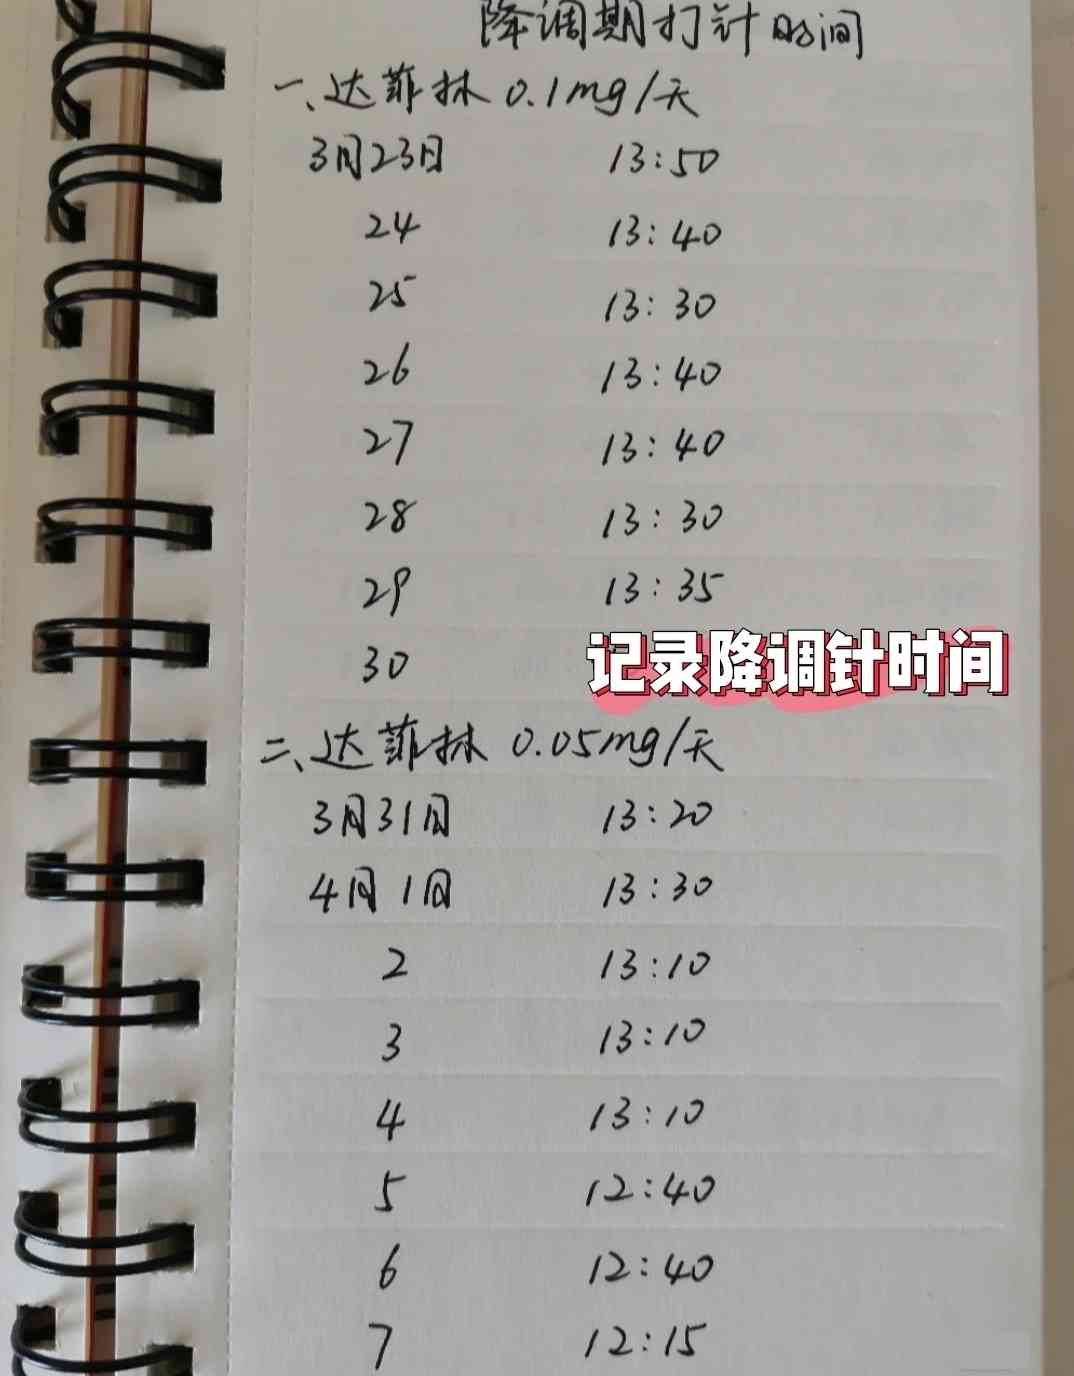 降调期打针时间
一、达菲林 0.1mg/天
3月23日 13:50
24 13:40
25 13:30
26 13:40
27 13:40
28 13:30
29 13:35
30 记录降调针时间
二、达菲林 0.05mg/天
3月31日 13:20
4月1日 13:30
2 13:10
3 13:10
4 13:10
5 12:40
6 12:40
7 12:15